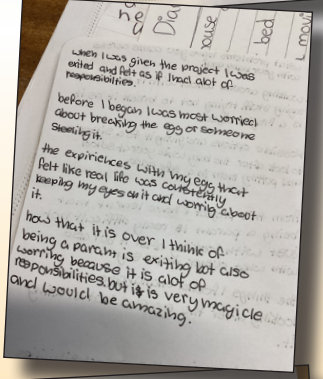 he
Dia
ouse
bed
movi
when I was given the project I was
exited and felt as if I had alot of
responsibilities.
before I began I was most worried
about breaking the egg or someone
steeling it.
the expiriences with my egg that
felt like real life was constently
keeping my eyes on it and worrig about
it.
now that it is over I think of
being a parant is exiting but also
worring because it is alot of
responsibilities. but it is very magicle
and would be amazing.